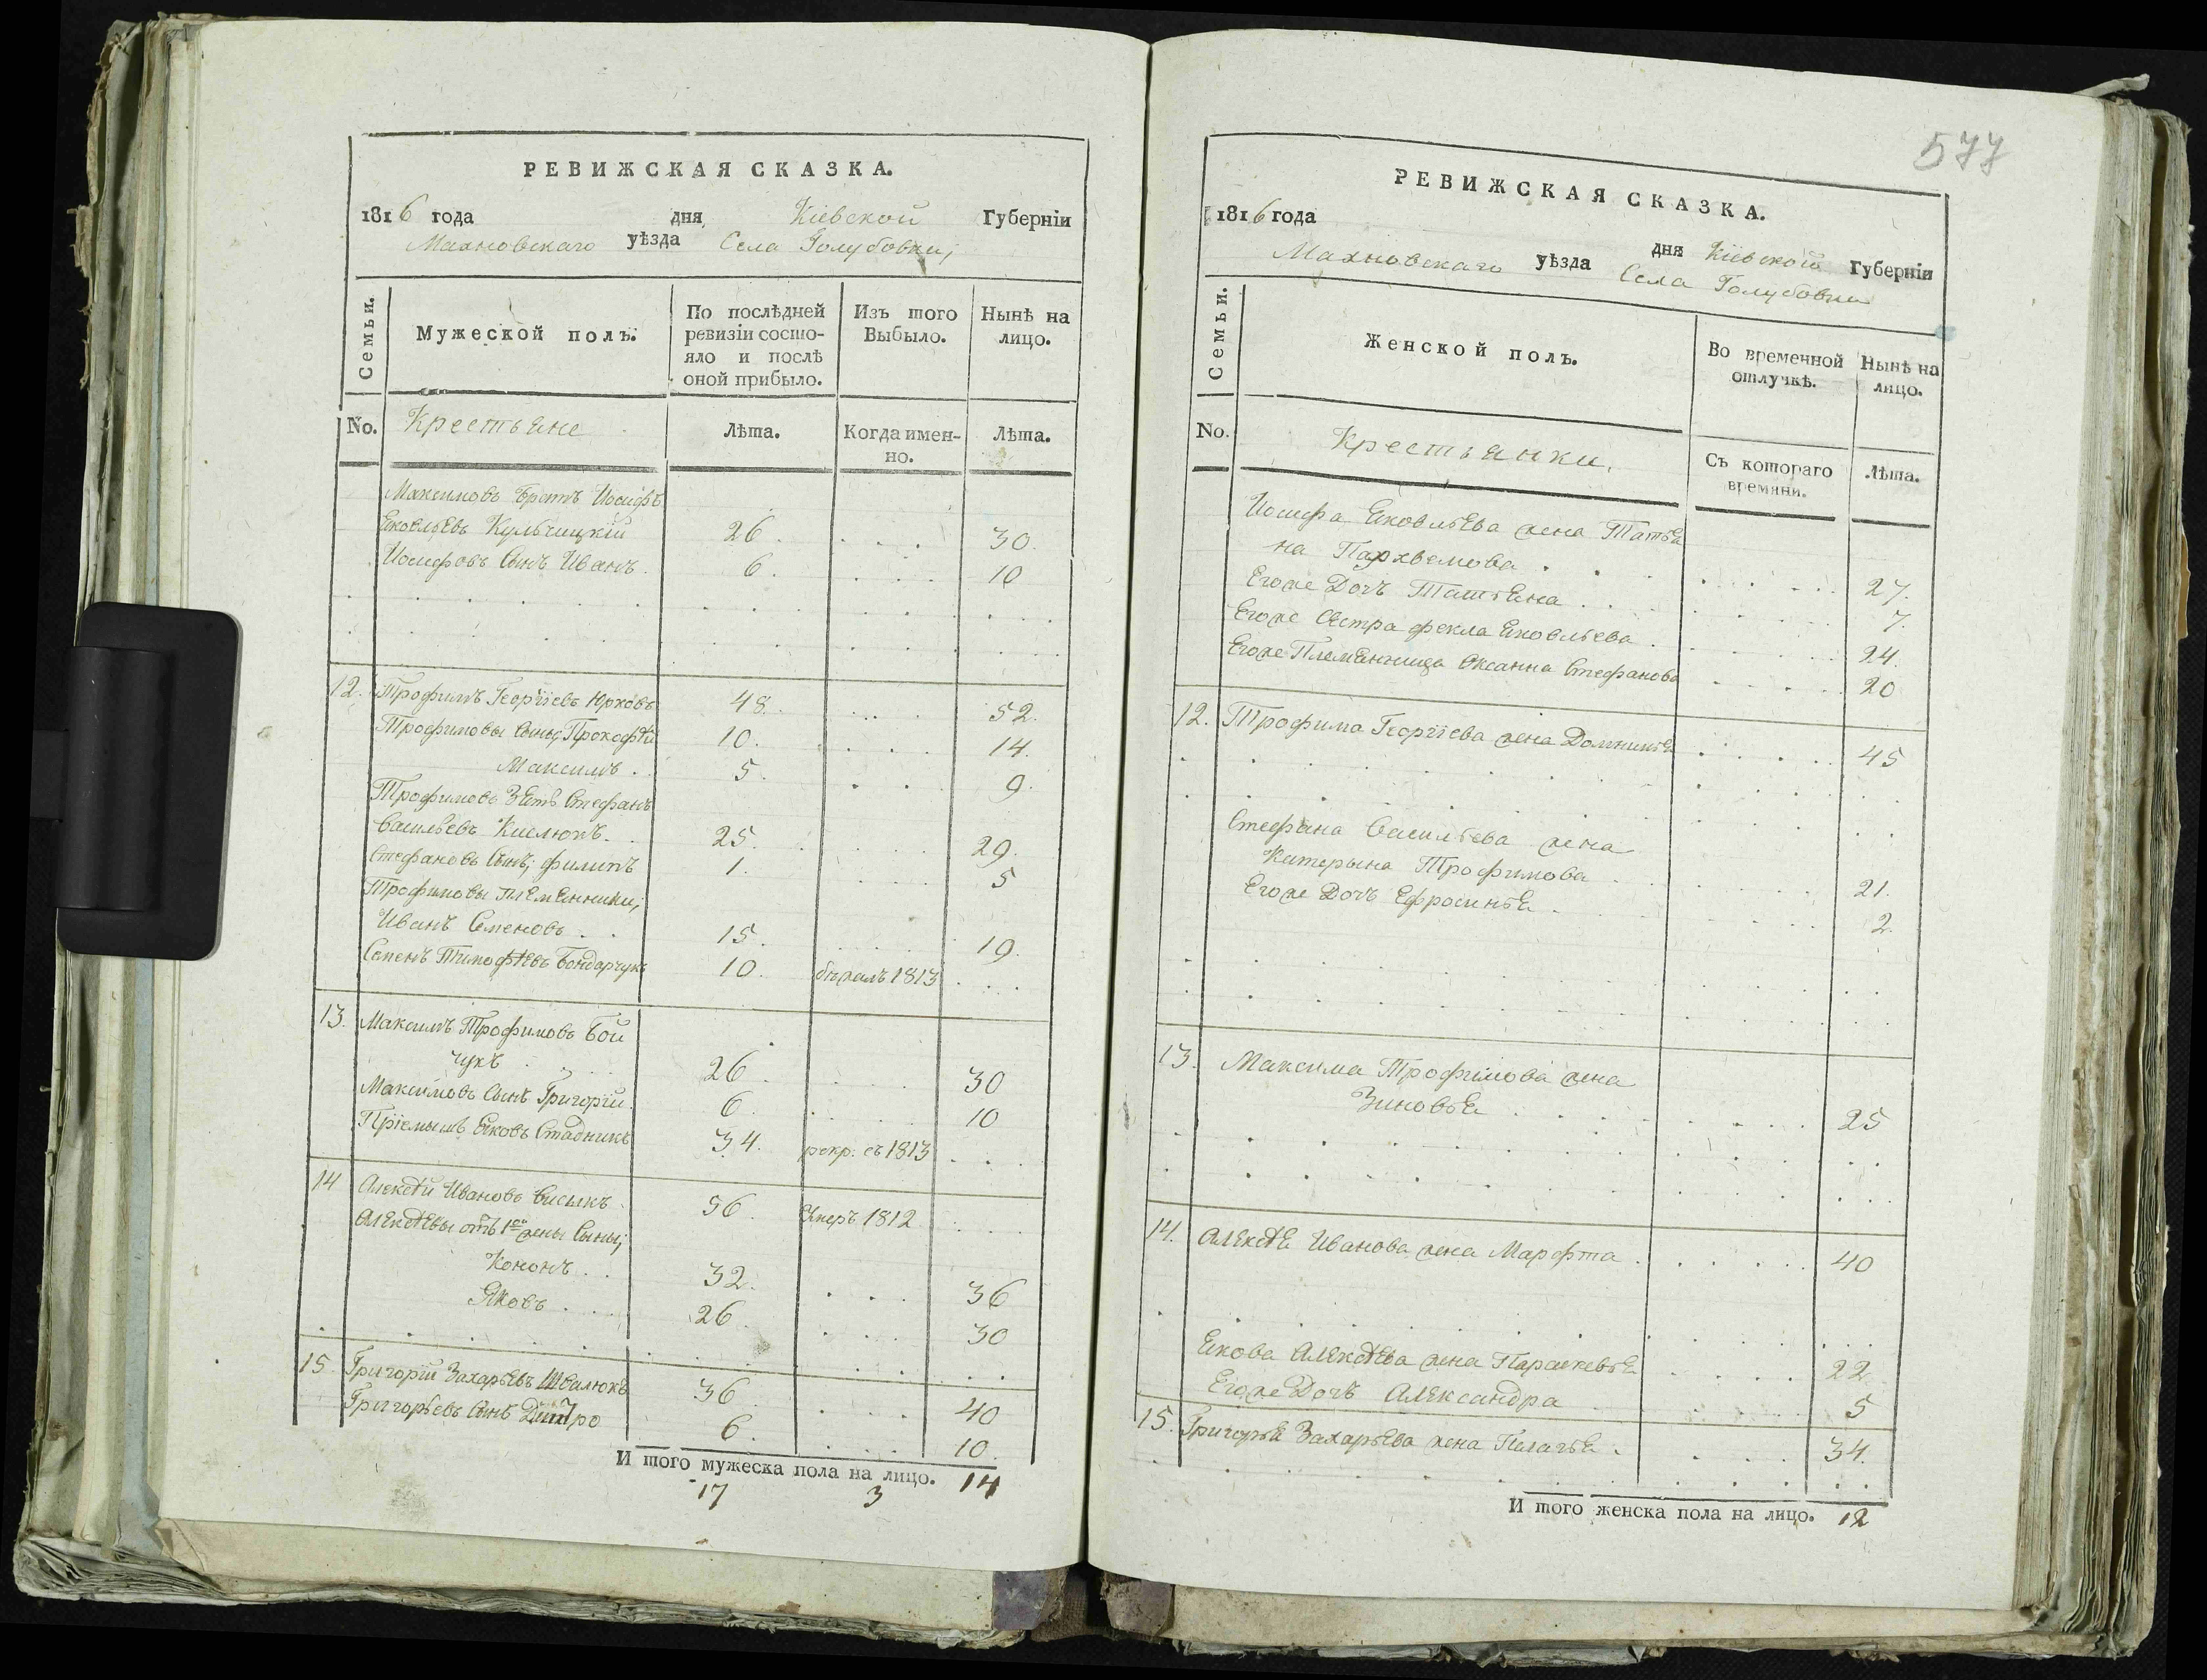 РЕВИЖСКАЯ СКАЗКА.
1816 года дня Кіевской Губерніи
Махновскаго уѣзда Села Голубовки;
Семьи.
Мужеской полъ.
По послѣдней ревизіи состо-
яло и послѣ
оной прибыло.
Изъ того Выбыло.
Нынѣ на лицо.
No. Крестьяне Лѣта. Когда имен-
но. Лѣта.
Максимовъ братъ Иосифъ
Яковлѣвъ Кульчицкій 26. 30.
Иосифовъ Сынъ Иванъ. 6. 10
12. Трофимъ Георгіевъ Юрковъ 48. 52.
Трофимовы Сыны; Прокофѣй 10. 14.
Максимъ. 5. 9.
Трофимовъ Зять Стефанъ
Васильевъ Киелюкъ. 25. 29.
Стефановъ Сынъ; филипъ 1. 5
Трофимовы племянники;
Иванъ Семеновъ. 15. 19.
Семенъ Тимофѣевъ Бондарчукъ 10. бѣжалъ 1813
13. Максимъ Трофимовъ Бой
чукъ 26. 30
Максимовъ Сынъ Григорій. 6. 10
Пріемышъ Яковъ Стадникъ 34. рекр: съ 1813
14 Алексѣй Ивановъ Висыкъ. 56. Умеръ 1812
Алексѣевы отъ 1ой жены Сыны;
Кононъ. 32. 36
Яковъ. 26. 30
15. Григорій Захарьевъ Швалюкъ 36 40
Григорьевъ Сынъ Дмитро 6. 10.
И того мужеска пола на лицо. 14
17 3
577
РЕВИЖСКАЯ СКАЗКА.
1816 года дня Кіевской Губерніи
Махновскаго уѣзда Села Голубовки
Семьи.
Женской полъ.
Во временной отлучкѣ.
Нынѣ на лицо.
No. Крестьянки. Съ котораго
времяни. Лѣта.
Иосифа Яковлѣва жена Татья
на Пархвемова. 27.
Егоже Дочъ Татьяна. 7.
Егоже Сестра фекла Яковлѣева. 24.
Егоже Племянница Оксанна Стефанова 20
12. Трофима Георгіева жена Домникія 45
Стефана Васильева жена
Катерына Трофимова 21.
Егоже Дочъ Ефросинья. 2.
13. Максима Трофимова жена
Зиновья 25
14. Алексѣя Иванова жена Марфта. 40
Якова Алексѣева жена Параскевья 22
Егоже Дочъ Александра 5
15. Григорья Захарьева жена Пелагья. 34.
И того женска пола на лицо. 12